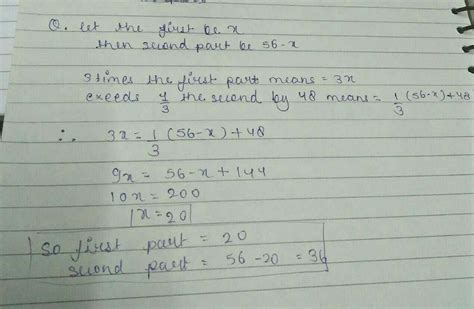 Q. let the first be x
then second part be 56-x
3times the first part means = 3x
exceeds 1/3 the second by 48 means = 1/3 (56-x)+48
∴ 3x = 1/3 (56-x)+48
9x = 56-x+144
10x = 200
x = 20
So first part = 20
second part = 56-20 = 36